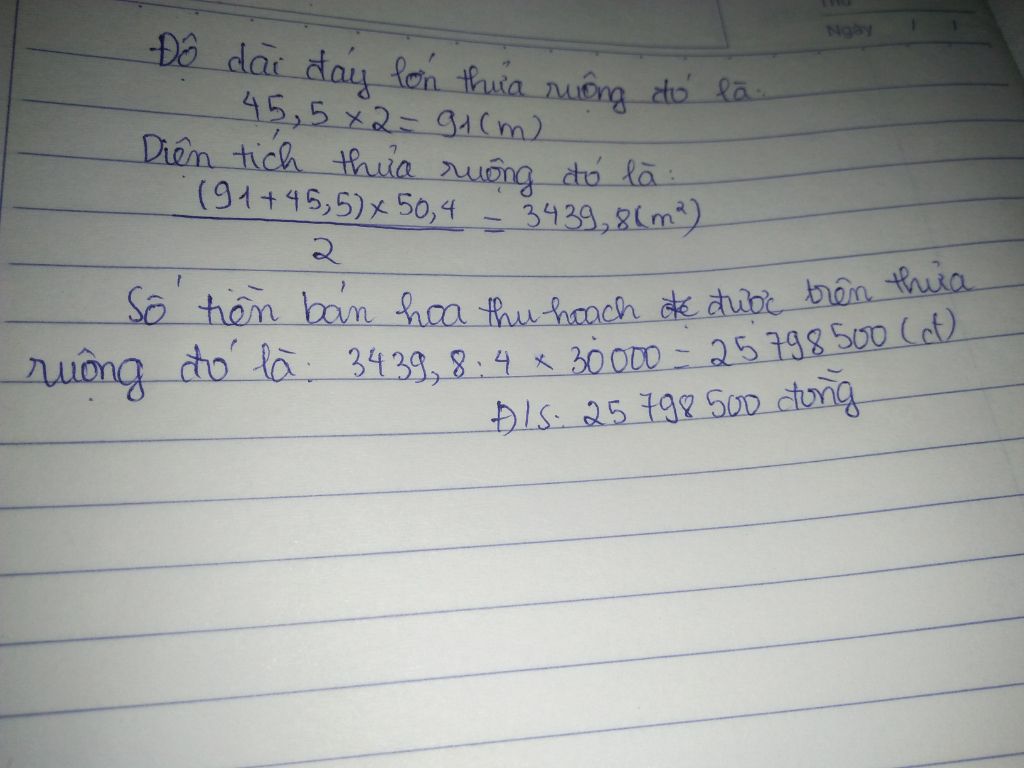 Thứ
Ngày / /
Độ dài đáy lớn thửa ruộng đó là:
45,5 × 2 = 91 (m)
Diện tích thửa ruộng đó là:
(91 + 45,5) × 50,4
2
= 3439,8 (m²)
Số tiền bán hoa thu hoạch được trên thửa
ruộng đó là: 3439,8 : 4 × 30000 = 25 798 500 (đ)
Đ/S: 25 798 500 đồng